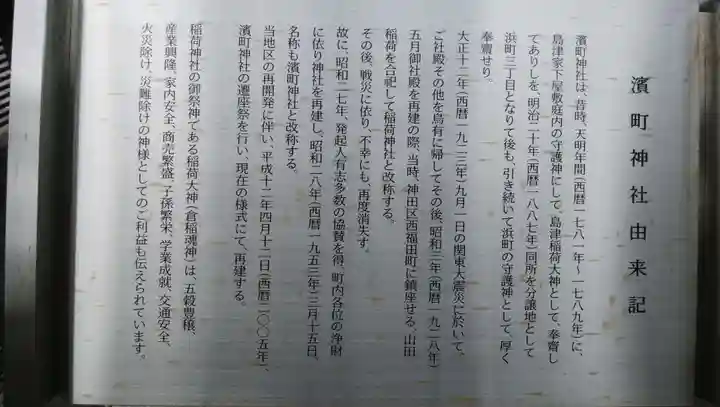 濱町神社由来記
濱町神社は、昔時、天明年間(西暦一七八一年～一七八九年)に、
島津家下屋敷庭内の守護神にして、島津稲荷大神として、奉齋し
てありしを、明治二十年(西暦一八八七年)同所を分譲地として
浜町三丁目となりて後も、引き続いて浜町の守護神として、厚く
奉齋せり。
大正十二年(西暦一九二三年)九月一日の関東大震災に於いて、
ご社殿その他を烏有に帰してその後、昭和三年(西暦一九二八年)
五月御社殿を再建の際、当時、神田区西福田町に鎮座せる、山田
稲荷を合祀して稲荷神社と改称する。
その後、戦災に依り、不幸にも、再度消失す。
故に、昭和二七年、発起人有志多数の協賛を得、町内各位の浄財
に依り神社を再建し、昭和二八年(西暦一九五三年)三月十五日、
名称も濱町神社と改称する。
当地区の再開発に伴い、平成十二年四月十二日(西暦二〇〇五年)、
濱町神社の遷座祭を行い、現在の様式にて、再建する。
稲荷神社の御祭神である稲荷大神(倉稲魂神)は、五穀豊穣、
産業興隆、家内安全、商売繁盛、子孫繁栄、学業成就、交通安全、
火災除け、災難除けの神様としてのご利益も伝えられています。